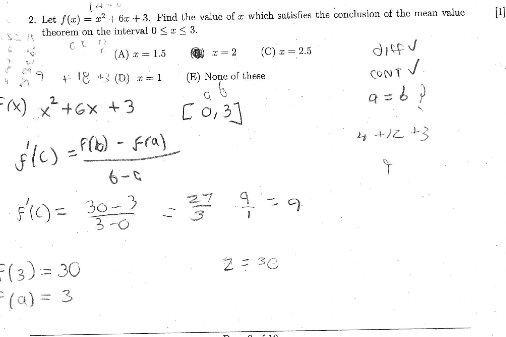 2. Let f(x) = x² + 6x + 3. Find the value of x which satisfies the conclusion of the mean value [1]
theorem on the interval 0 ≤ x ≤ 3.
(A) x = 1.5 x = 2 (C) x = 2.5
9 + 18 +3 (D) x = 1 (E) None of these
diff ✓
cont ✓
a = b ?
a b
F(x) x² + 6x + 3 [0, 3]
4 + 12 + 3
f'(c) = f(b) - f(a)
b-a
f'(c) = 30 - 3 = 27 9 = 9
3 - 0 3 1
F(3) = 30 2 = 30
F(a) = 3